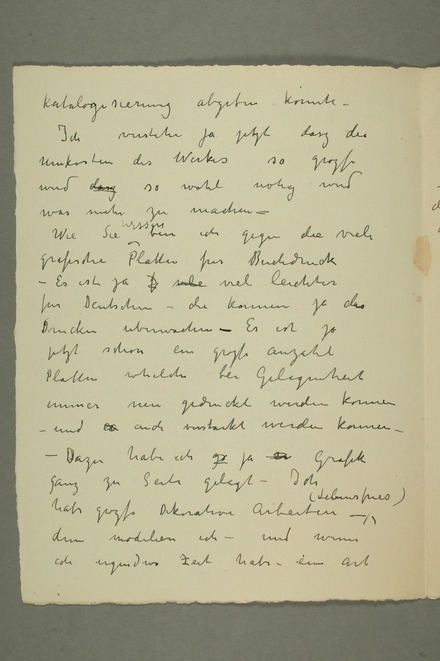 Katalogisierung abgeben könnte –
Ich verstehe ja jetzt dasz die
Unkosten des Werkes so grosze
wird dasz so wohl nötig wird
was mehr zu machen –
Wie Sie wissen bin ich gegen die viele
grafische Platten für Buchdruck
– Es ist ja viel leichter
für Deutschen – die können ja das
Drucken überwachen – Es ist ja
jetzt schon ein grosze anzahl
Platten welche bei Gelegenheit
immer neu gedruckt werden können
– und auch verstärkt werden können –
– Dazu habe ich ja Grafik
ganz zu Seite gelegt – Ich
habe grosze Dekorative Arbeiten – (Lebensfries)
dem modellen ich – und wenn
ich irgendwo Zeit habe – ein art